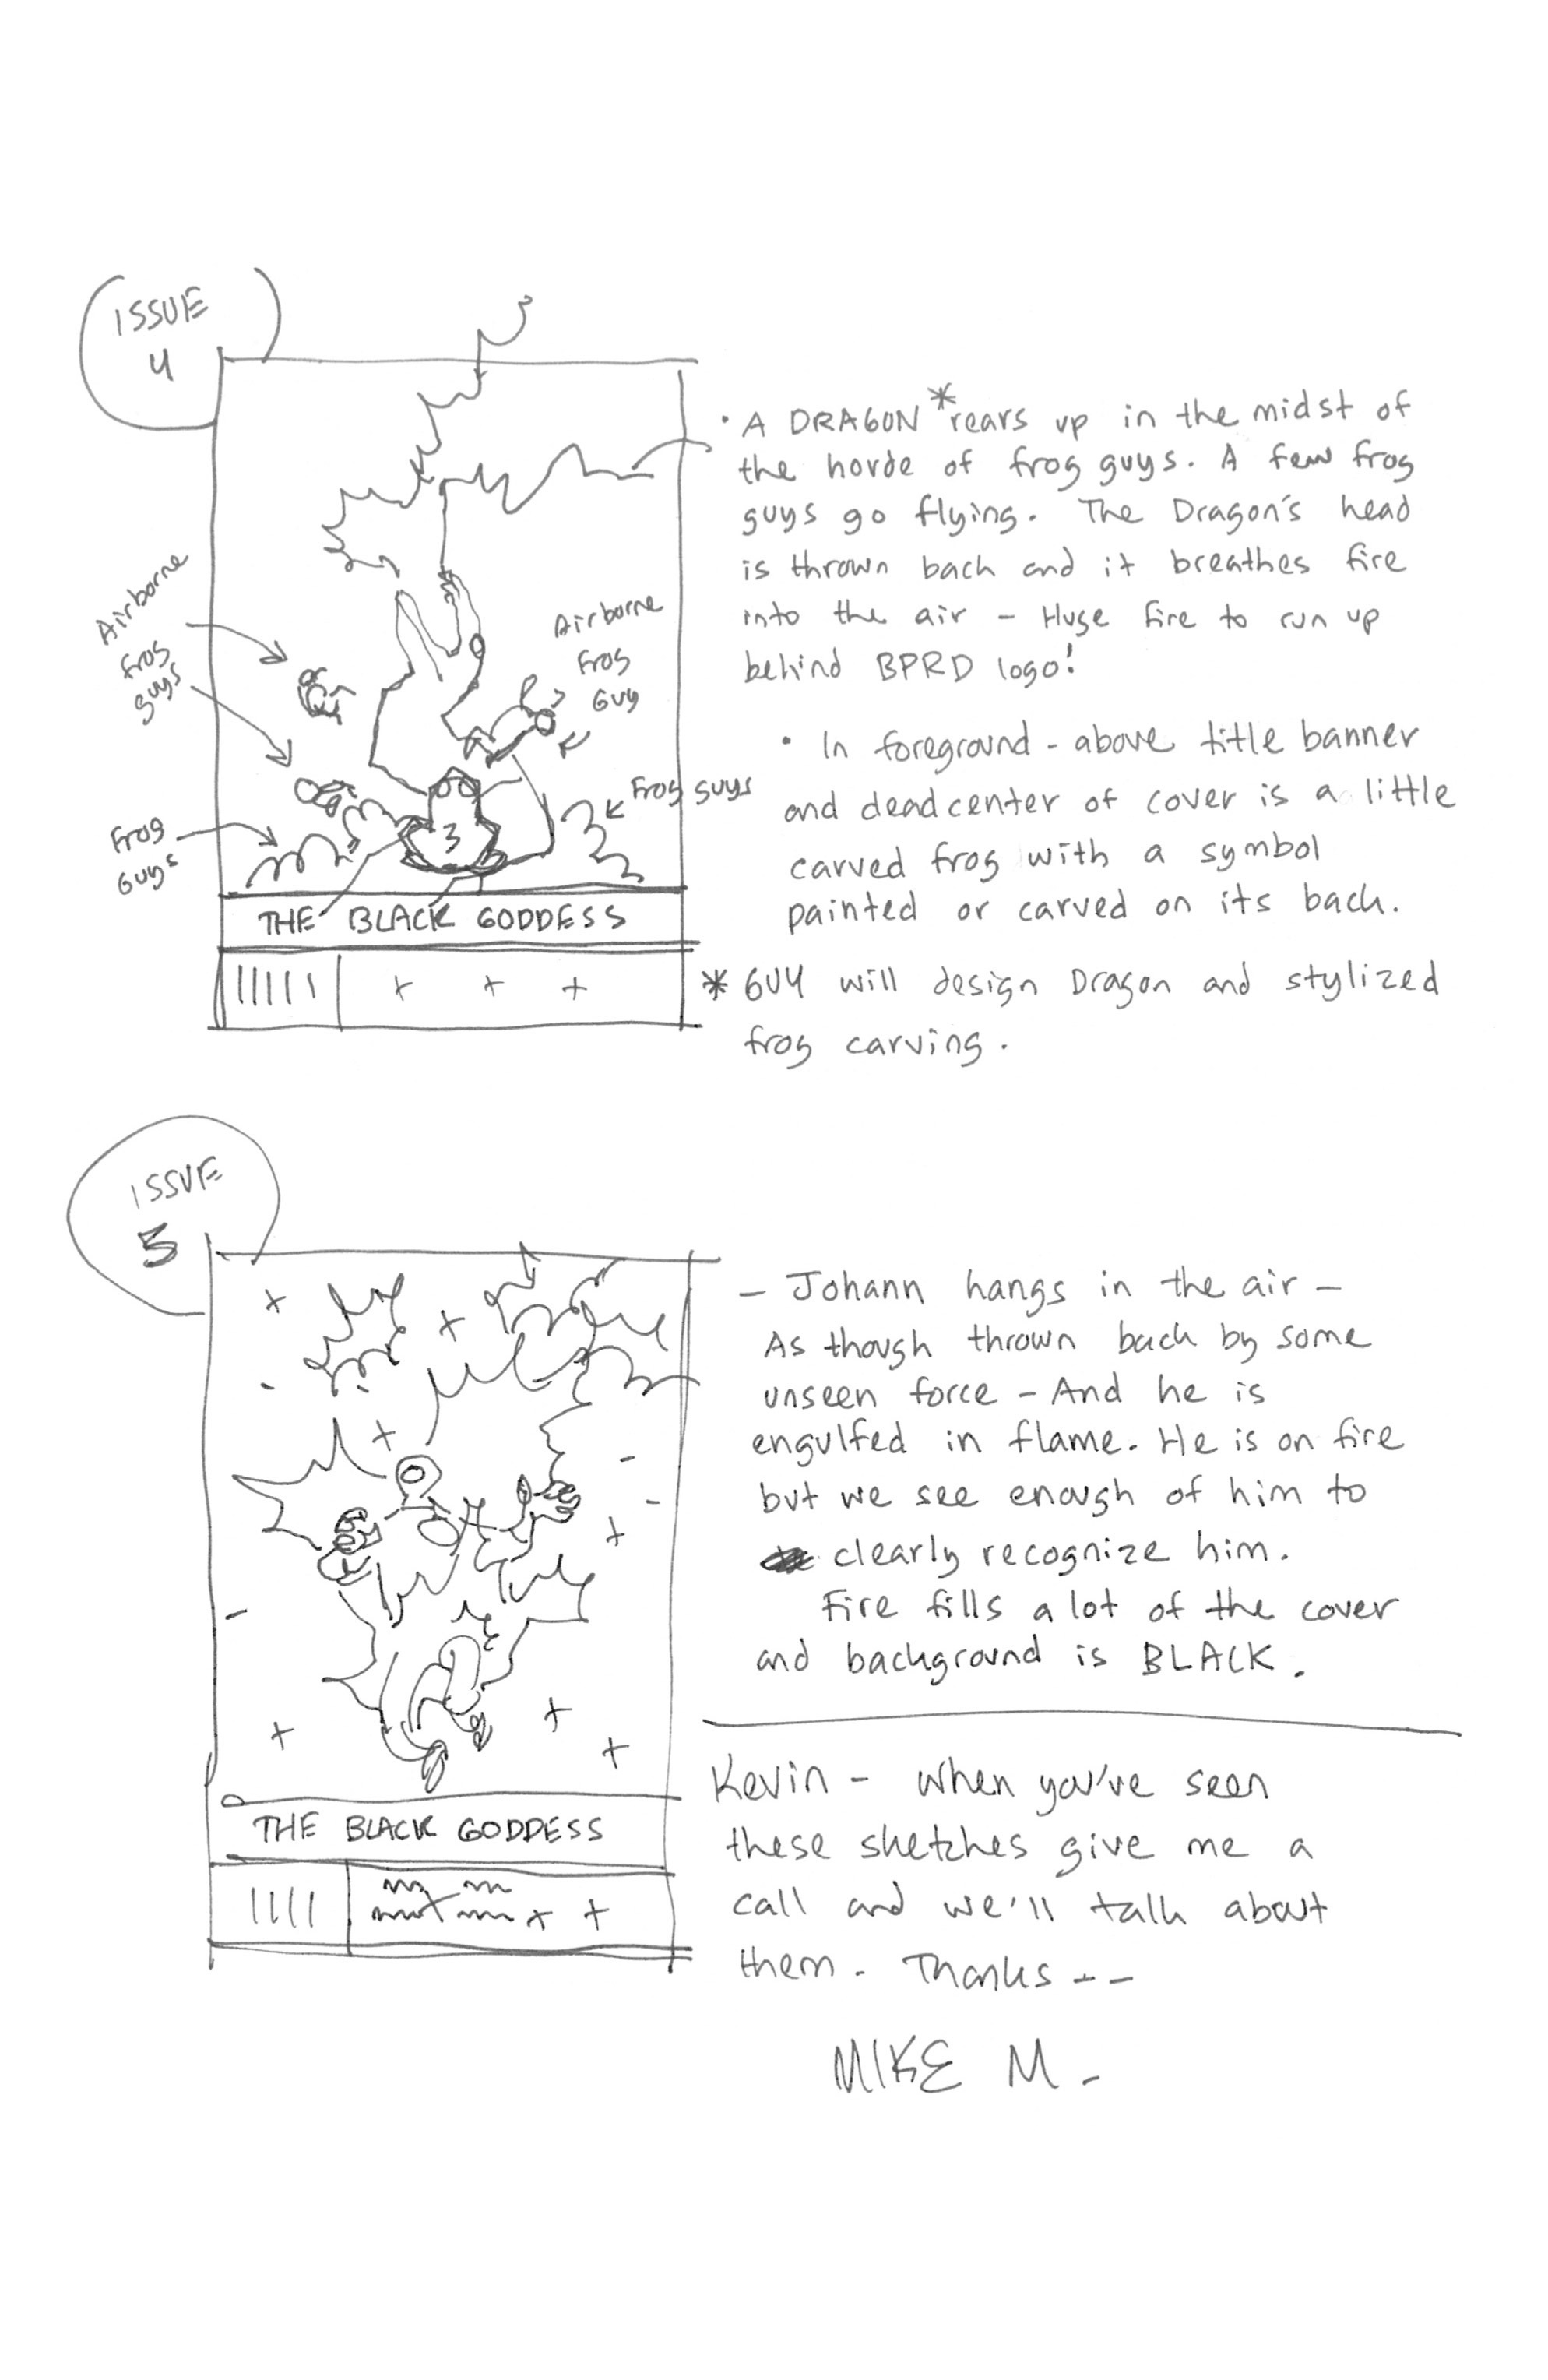 ISSUE
4
• A DRAGON * rears up in the midst of
the horde of frog guys. A few frog
guys go flying. The Dragon's head
is thrown back and it breathes fire
into the air – Huge fire to run up
behind BPRD logo!
Airborne
frog
guys
Airborne
Frog
Guy
Frog guys
Frog
Guys
3
• In foreground - above title banner
and dead center of cover is a little
carved frog with a symbol
painted or carved on its back.
THE BLACK GODDESS
* GUY will design Dragon and stylized
frog carving.
ISSUE
5
– Johann hangs in the air –
As though thrown back by some
unseen force – And he is
engulfed in flame. He is on fire
but we see enough of him to
clearly recognize him.
Fire fills a lot of the cover
and background is BLACK.
THE BLACK GODDESS
Kevin – When you've seen
these sketches give me a
call and we'll talk about
them. Thanks --
MIKE M.